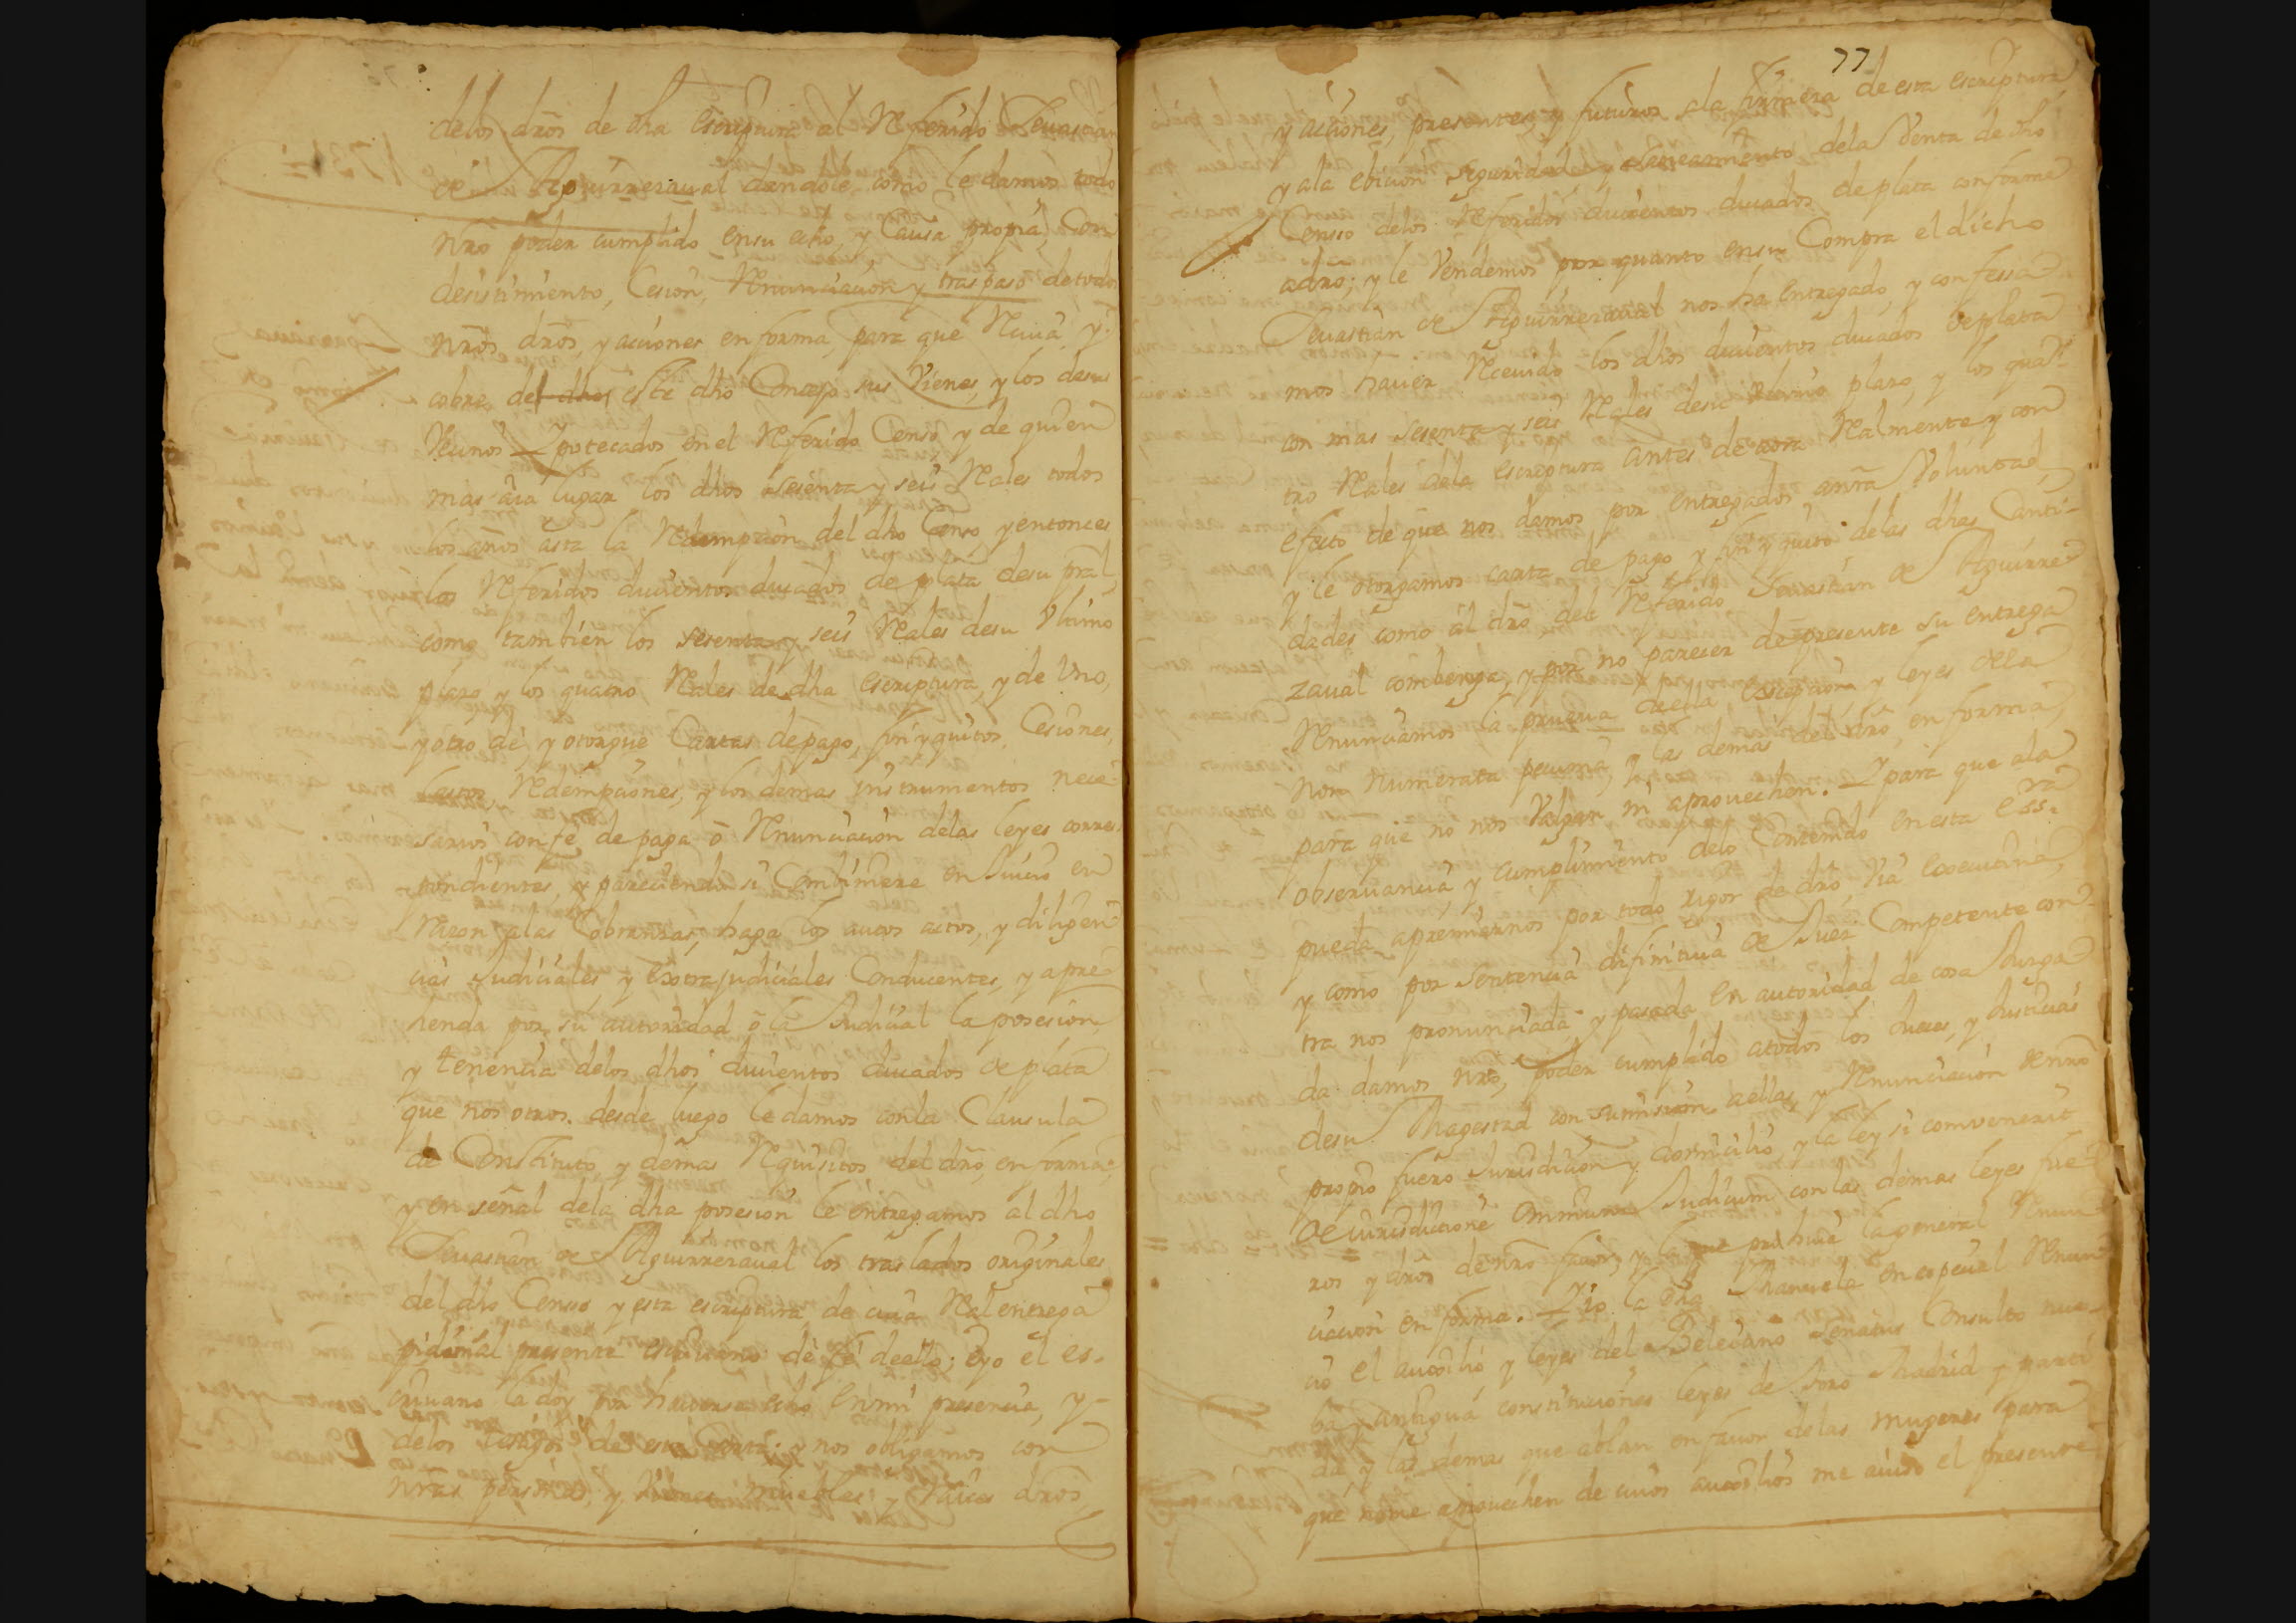 delos dros de dha escriptura al Referido Sevastian
de Aguirrezaval dandole, como le damos todo
nro poder cumplido ensu echo, y Causa propia, Con
desistimiento, Cesion, Renunciacion y traspaso detodos
nros dros, y acciones en forma, para que Reciva, y
cobre, del dhos este dho Concejo sus Vienes, y los demas
Vecinos Ypotecados en el Referido Censo y de quien
mas aia lugar los dhos sesenta y seis Reales todos
los años asta la Redempcion del dho Censo, y entonces
los Referidos ducientos ducados de plata desu pral,
como tambien los sesenta y seis Reales desu Vltimo
plazo y los quatro Reales de dha escriptura, y de Vno,
y otro dé, y otorgue Cartas de pago, fin y quitos, Cesiones,
lastos, Redempciones, y los demas instrumentos nece-
sarios con fé, de paga ó Renunciacion delas leyes corres
pondientes, y pareciendo si Combiniere en Juicio en
Razon alas Cobranzas, haga los autos actos, y diligen
cias Judiciales, y Extrajudiciales Conducentes, y apre
henda por su autoridad ó la Judicial la posesion
y tenencia delos dhos ducientos ducados de plata
que nos otros desde luego le damos conla Clausula
de Constituto, y demas Requisitos del dro, en forma;
y en señal dela dha posesion le entregamos al dho
Sevastian de Aguirrezaval los traslados originales
del dho Censo y esta escriptura de cuia Real entrega
pidimos al presente escrivano dé fé deello; e yo el es-
crivano la doy por haverse echo en mi presencia, y
delos testigos de esta Carta: y nos obligamos con
nras personas, y Vienes muebles y Raices dros,
77
y acciones, presentes, y futuros ala firmeza de esta escriptura
y ala eviccion seguridad y saneamiento dela Venta de dho
Censo delos Referidos ducientos ducados de plata conforme
adro; y le Vendemos por quanto ensu Compra el dicho
Sevastian de Aguirrezaval nos ha entregado, y confesa
mos haver Recivido los dhos ducientos ducados de plata
con mas sesenta y seis Reales desu Vltimo plazo, y los qua-
tro Reales dela escriptura antes de aora Realmente y con
efecto de que nos damos por entregados anra Voluntad,
y le otorgamos carta de pago y fin y quito delas dhas Canti-
dades como al dro del Referido Sevastian de Aguirre
zaval combenga, y por no parecer de presente su entrega
Renunciamos la prueva della, excepcion, y leyes dela
Non Numerata pecunia, y las demas del dro, en forma,
para que no nos Valgan, ni aprovechen. Y para que ala
observancia, y cumplimiento delo Contenido en esta essra
pueda apremiarnos por todo rigor de dro, Via executiva,
y como por sentencia difinitiva de Juez Competente con-
tra nos pronunciada y pasada en autoridad de cosa Juzga
da damos nro, poder cumplido atodos los Jueces, y Justicias
desu Magestad con sumision aellas, y Renunciacion denro
propio fuero Jurisdicion y domicilio, y la ley si convenerit
de iurisdictione omnium Judicum con las demas leyes fue
ros y dros denro favor, y la que prohive la general Renun
ciacion en forma. Y Yo la dha Manuela en especial Renun
cio el auxilio y leyes del Beleiano Senatus Consulto nue-
ba y antigua constituciones leyes de toro Madrid y parti
da y las demas que ablan en favor delas mugeres para
que nome aprovechen de cuios auxilios me avisó el presente